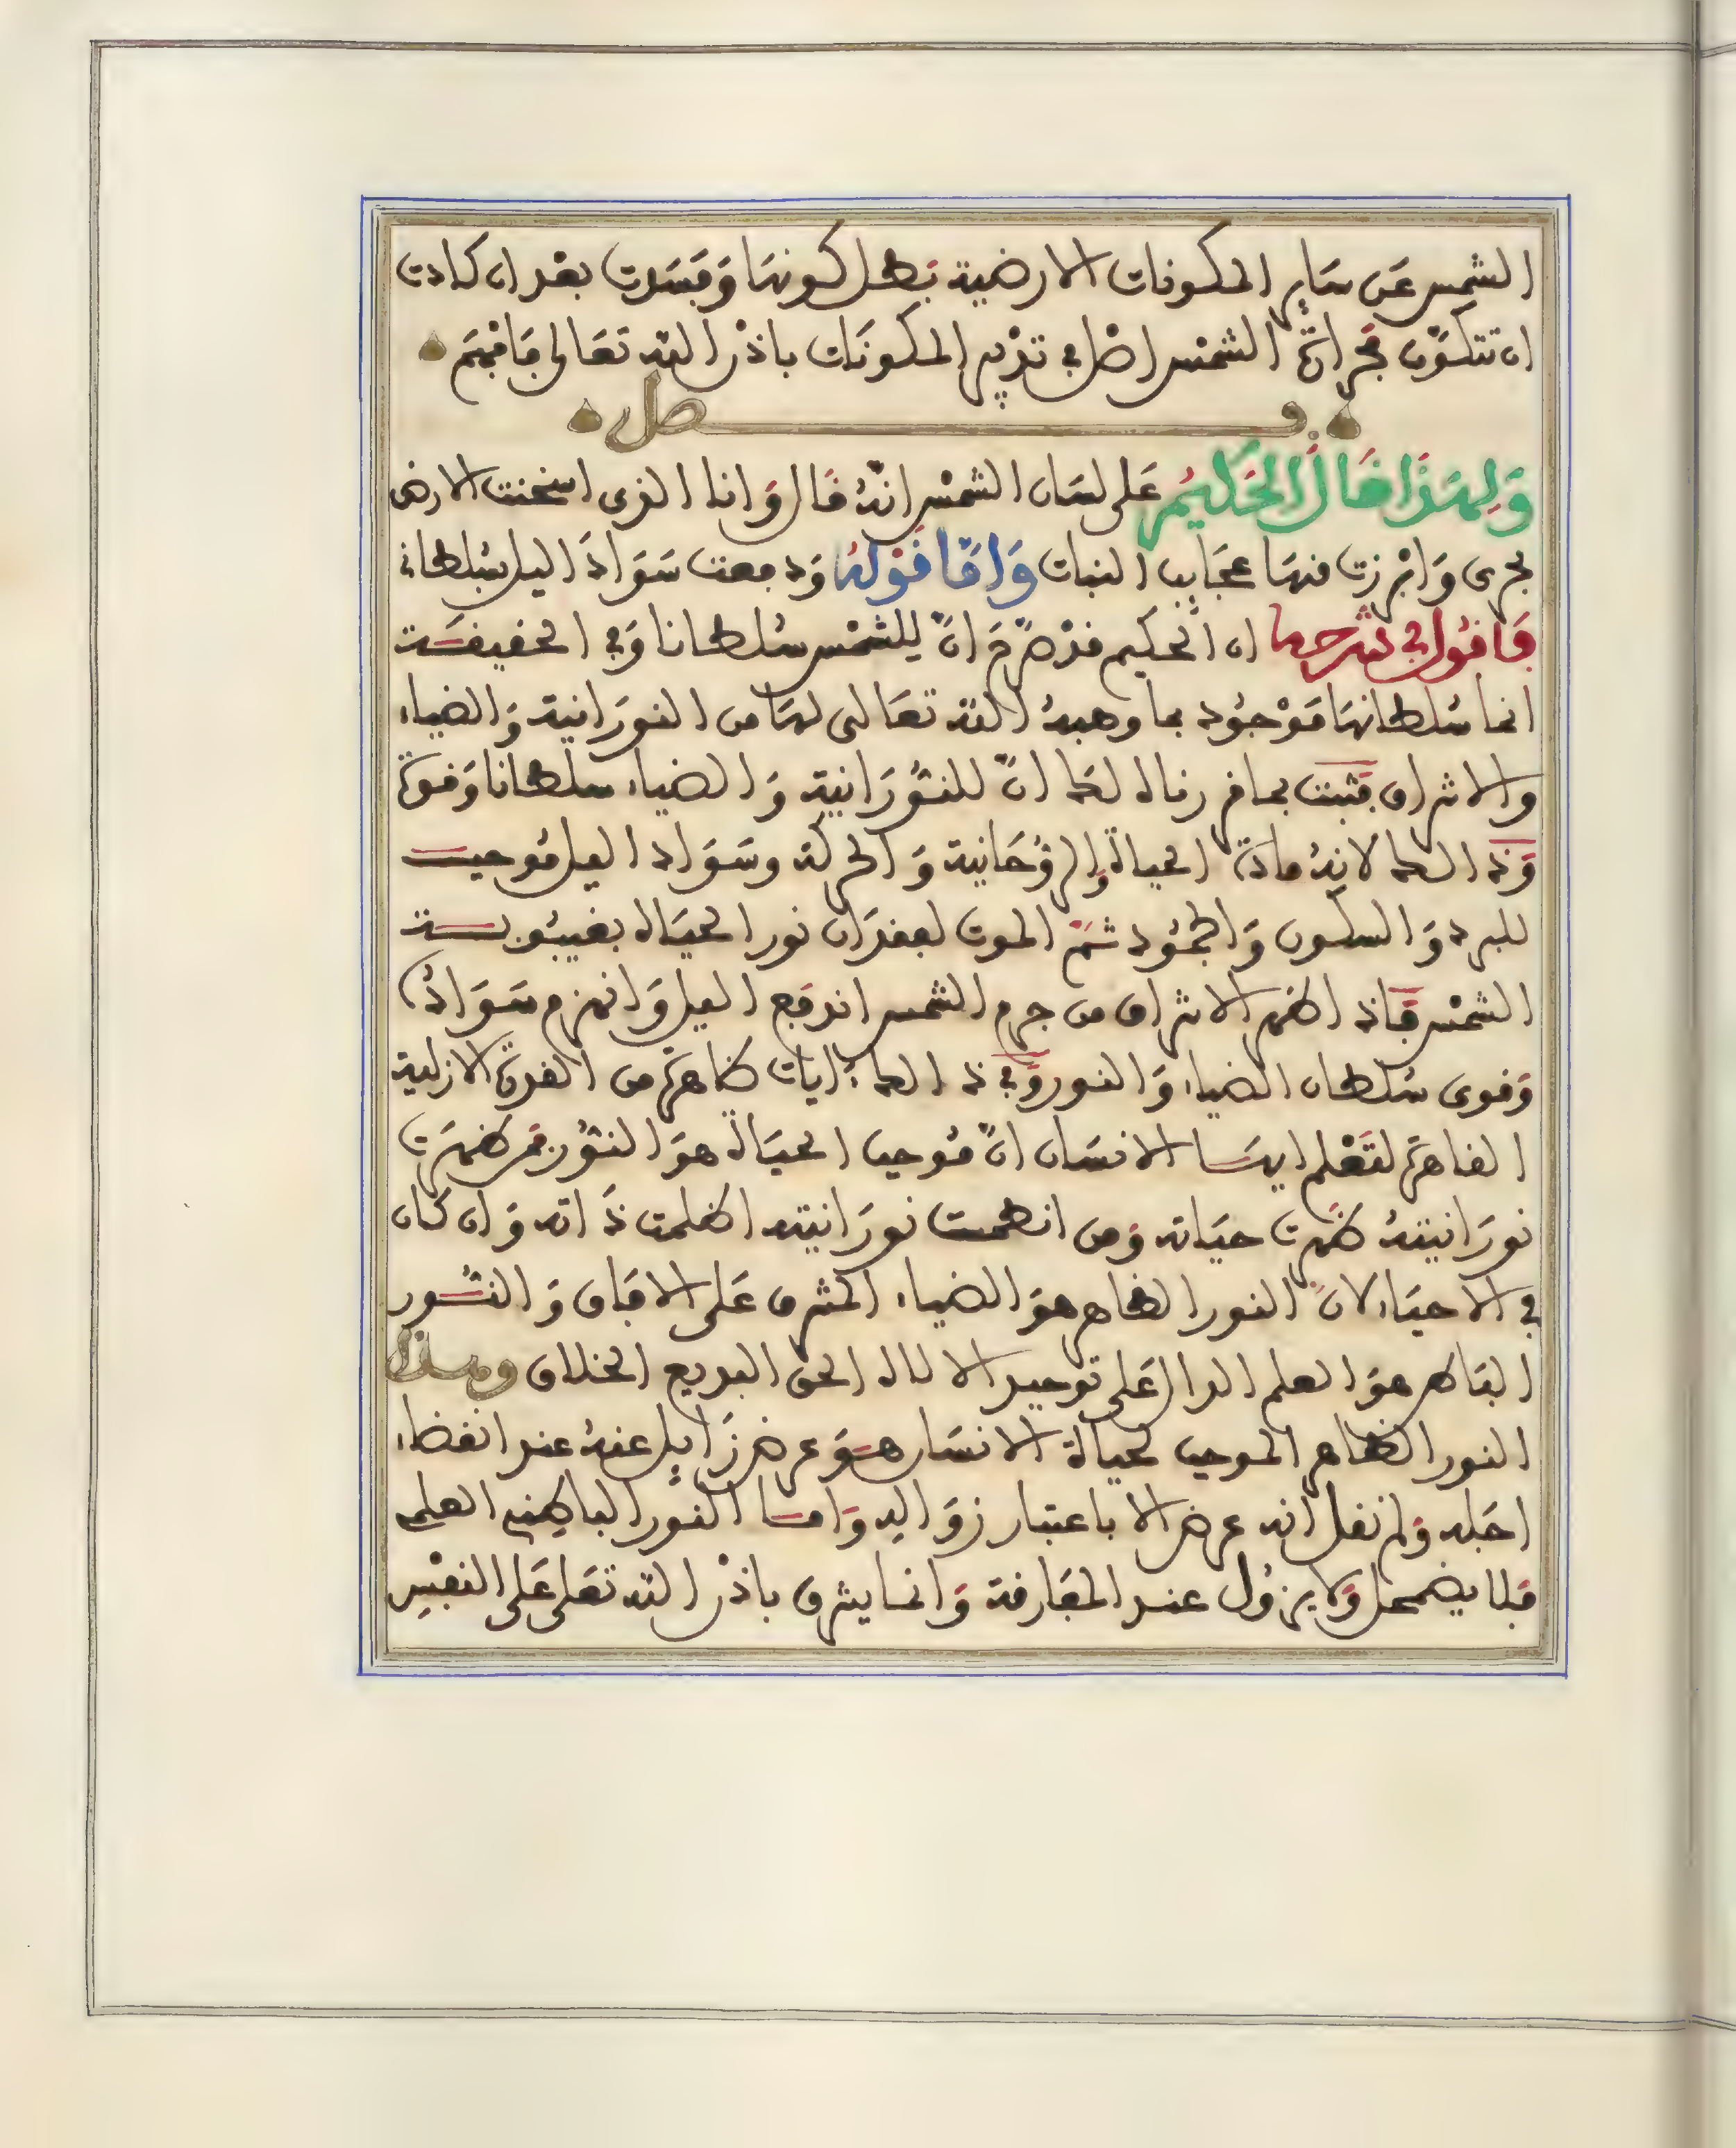 الشمس عَن سَاير المكونات الارضية بَطل كونهَا وَفَسَدت بعْد ان كادت
ان تتكوّن فجرات الشمْس اصْل في تدْبير المكونَات باذْن الله تعَالى فَافْهَم
فصل
وَلِهَذَا قَالَ الحَكيمُ عَلى لسَان الشمْس انهُ قَال وَانا الذي اسخنت الارض
بحرى وَابْرزت منهَا عجَايب النبات وَامّا قَوْلهُ وَدفعت سَوَادَ الليل بسُلطانى
فَاقُول في شرحها ان الحكيم قدْ صَرّحَ انّ للشمْس سُلطانا وَفي الحقيقَة
انما سُلطانهَا مَوْجُود بما وهبهُ الله تعَالى لهَا من النورَانية وَالضياء
والاشراق فثبت بما قررناه لك انّ للنّورَانية وَالضياء سلطانا وَقوة
وَذلك لانهُ مادة الحياة وَالروُحَانية وَالحركة وسَوَاد الليل مُوجب
للبرد وَالسكون وَالجمُود ثمّ الموت لفقدَان نور الحيَاة بغيبُوبة
الشمْس فَاذا ظهر الاشراق من جرم الشمس اندفَع الليل وَانهزم سَوَادُه
وَقوى سُلطان الضياء وَالنور وَفي ذلك ايات ظاهرة من القدرة الازلية
القاهرة لتَعْلم ايهَا الانسَان انّ مُوجب الحيَاة هوَ النّوُر فمن ظهرَت
نورَانيتهُ ظهرت حيَاته وَمن انطمست نورَانيته اظلمت ذَاته وَان كان
في الاحيَاء لانّ النور الظاهر هوَ الضياء المشرق عَلى الافَاق وَالنّور
البَاطن هوَ العلم الدال عَلى توحيد الالاه الحق البديع الخلاق وهذا
النور الظاهر الموجب لحياة الانسَان هوَ عرض زَايل عنهُ عند انقضاء
اجَله وَلم نقل انه عرض الا باعتبار زوَاله وَامّا النُور الباطن العلم
فَلا يضمحل وَلا يزوُل عند المفَارقة وَانما يشرق باذْن الله تعَلى عَلى النفْسِ